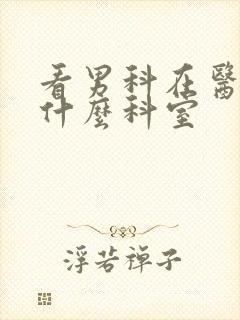 看男科在醫
什麼科室
浮若禪子